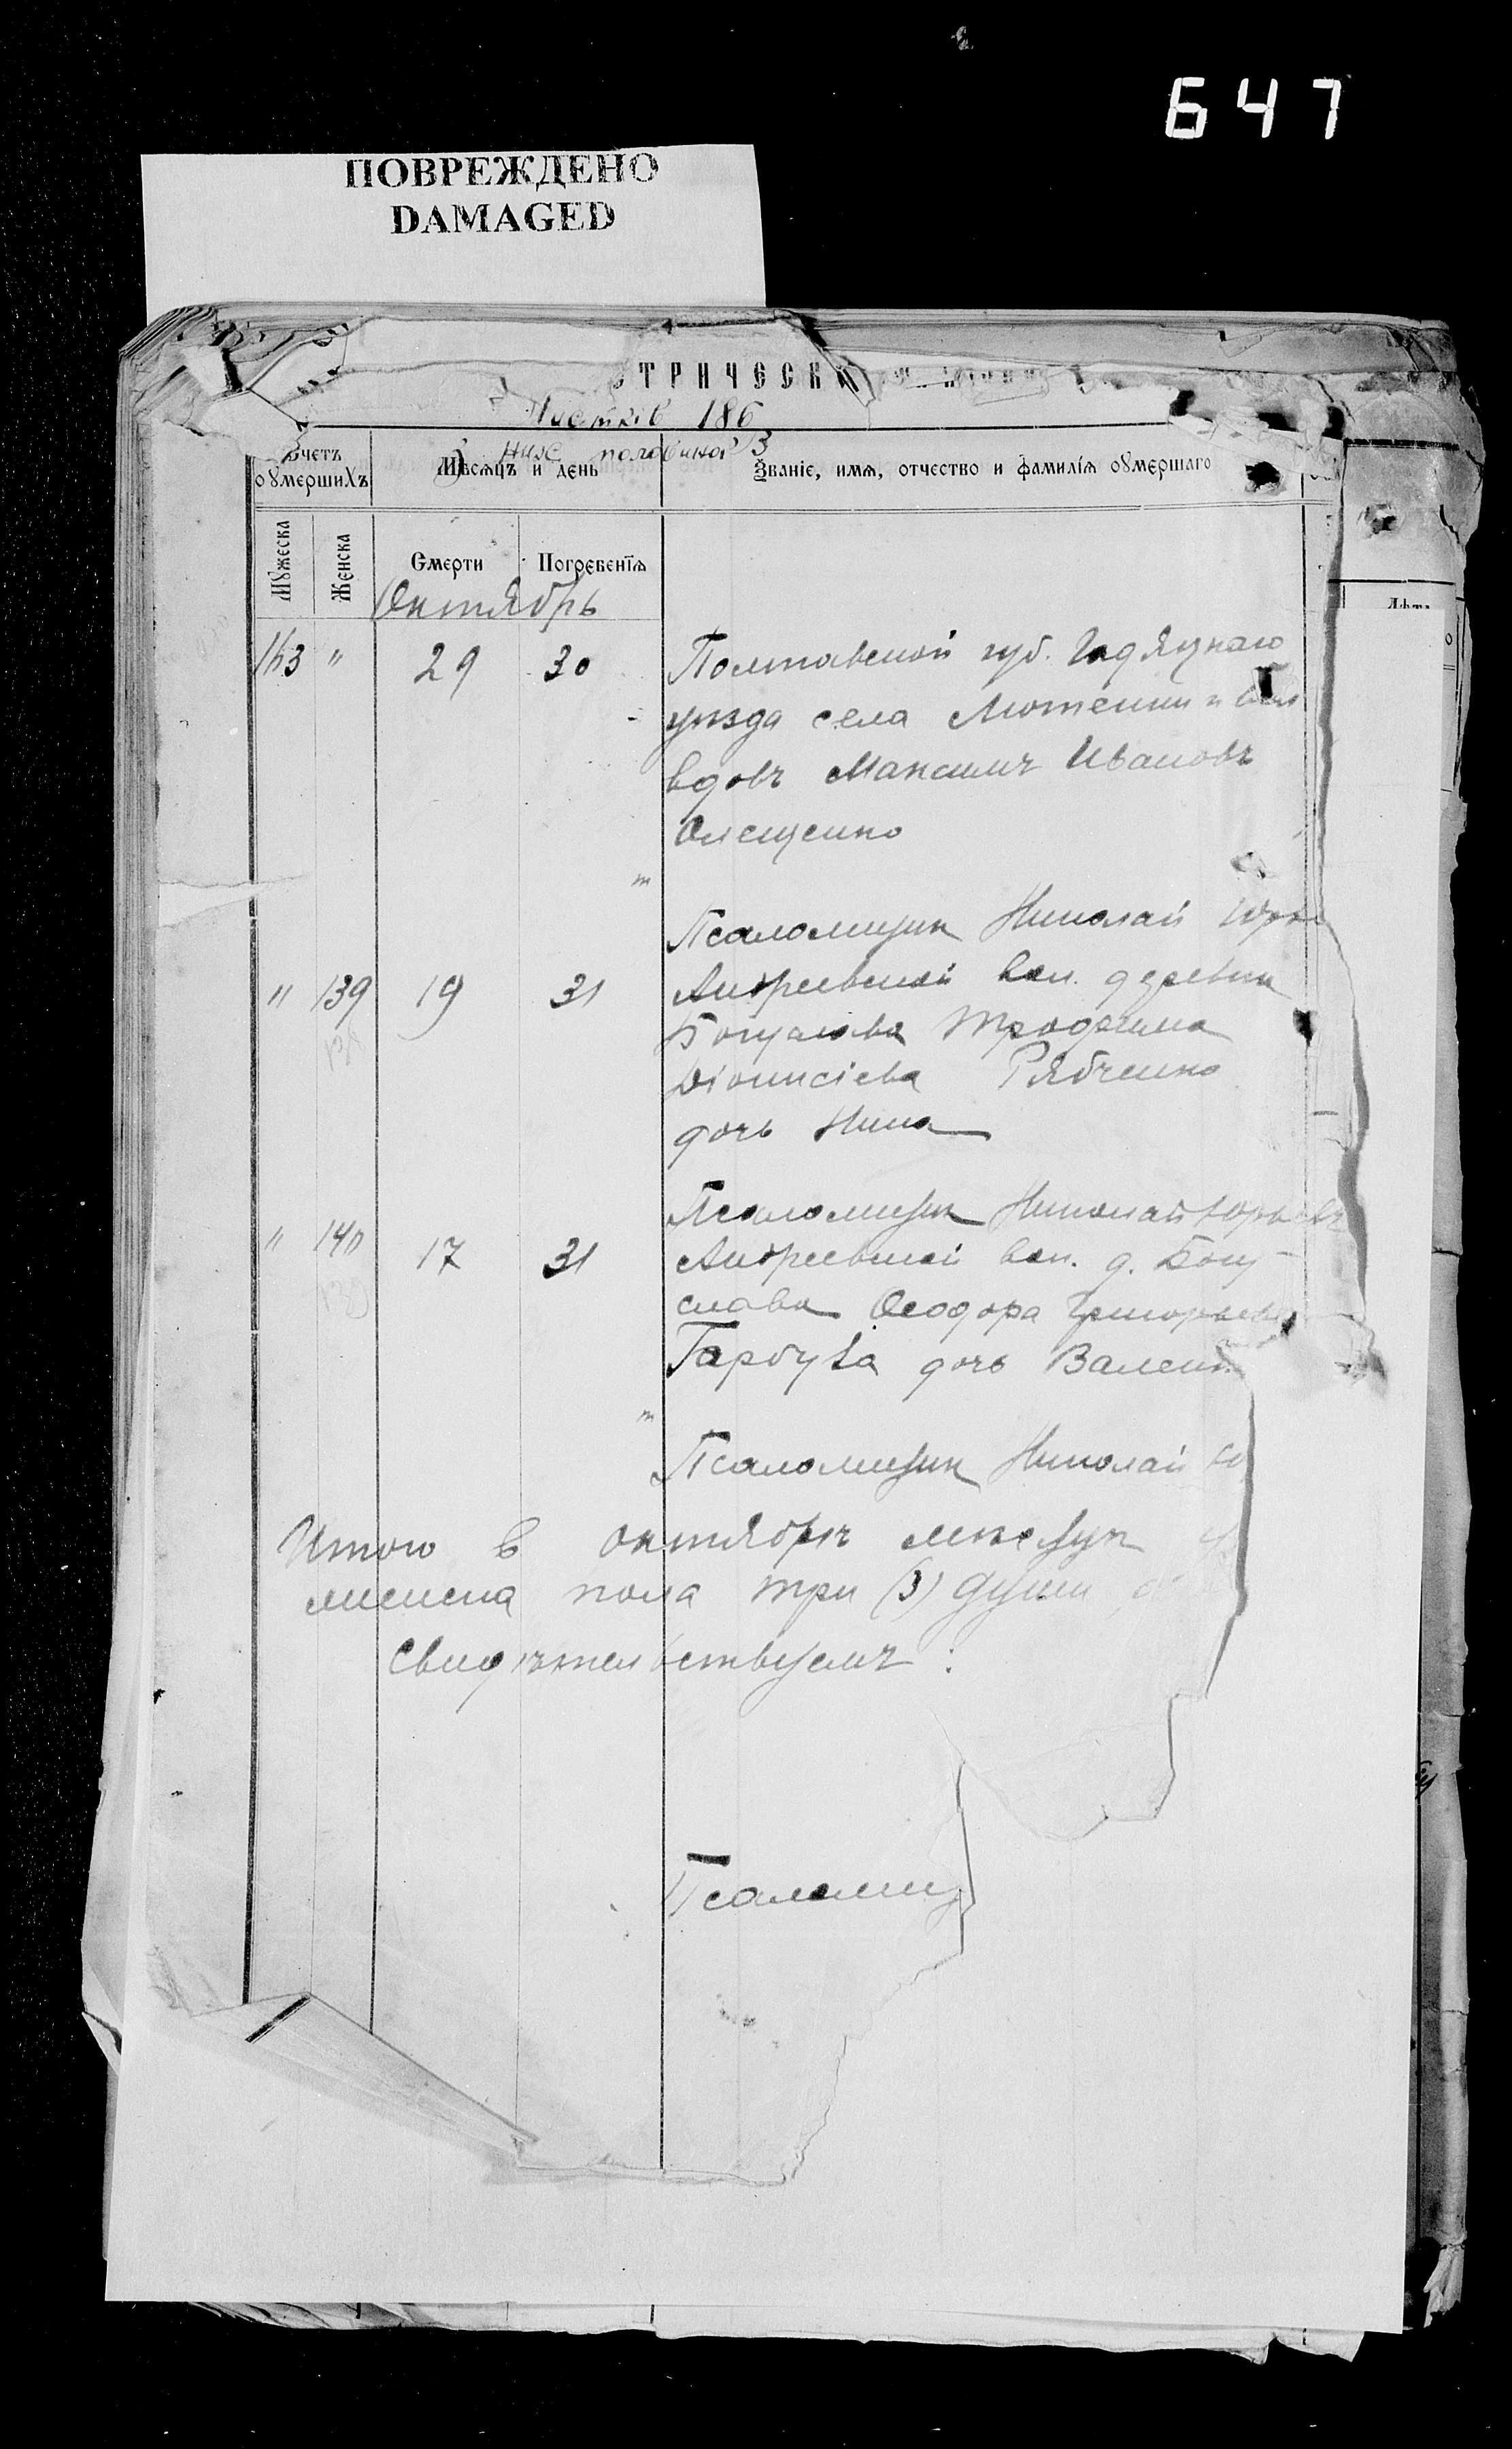 647
ПОВРЕЖДЕНО
DAMAGED
ТРИЧЕСК
186
Счетъ оумершихъ
Мѣсяцъ и день
Званіе, имя, отчество и фамилія оумершаго
Мужеска
Женска
Смерти
Погребенія
Октябрь
163 " 29 30 Полтавской губ. Гадячкаго
уѣзда села Лютеньки
вдовъ Максимъ Ивановъ
Олещенко
Псаломщик Николай Юрь
" 139 19 31 Андреевской вол. деревни
Богуслава Трофима
Діонисіева Рябченко
дочь Нина
Псаломщик Николай Юрьевъ
" 140 17 31 Андреевской вол. д. Богу-
слава Ѳеодора Григорьева
Гарбуза дочь Вален
Псаломщик Николай Ю
Итого в октябрѣ мѣсяцѣ
женска пола три (3) души
Свидѣтельствуемъ :
Псаломщ